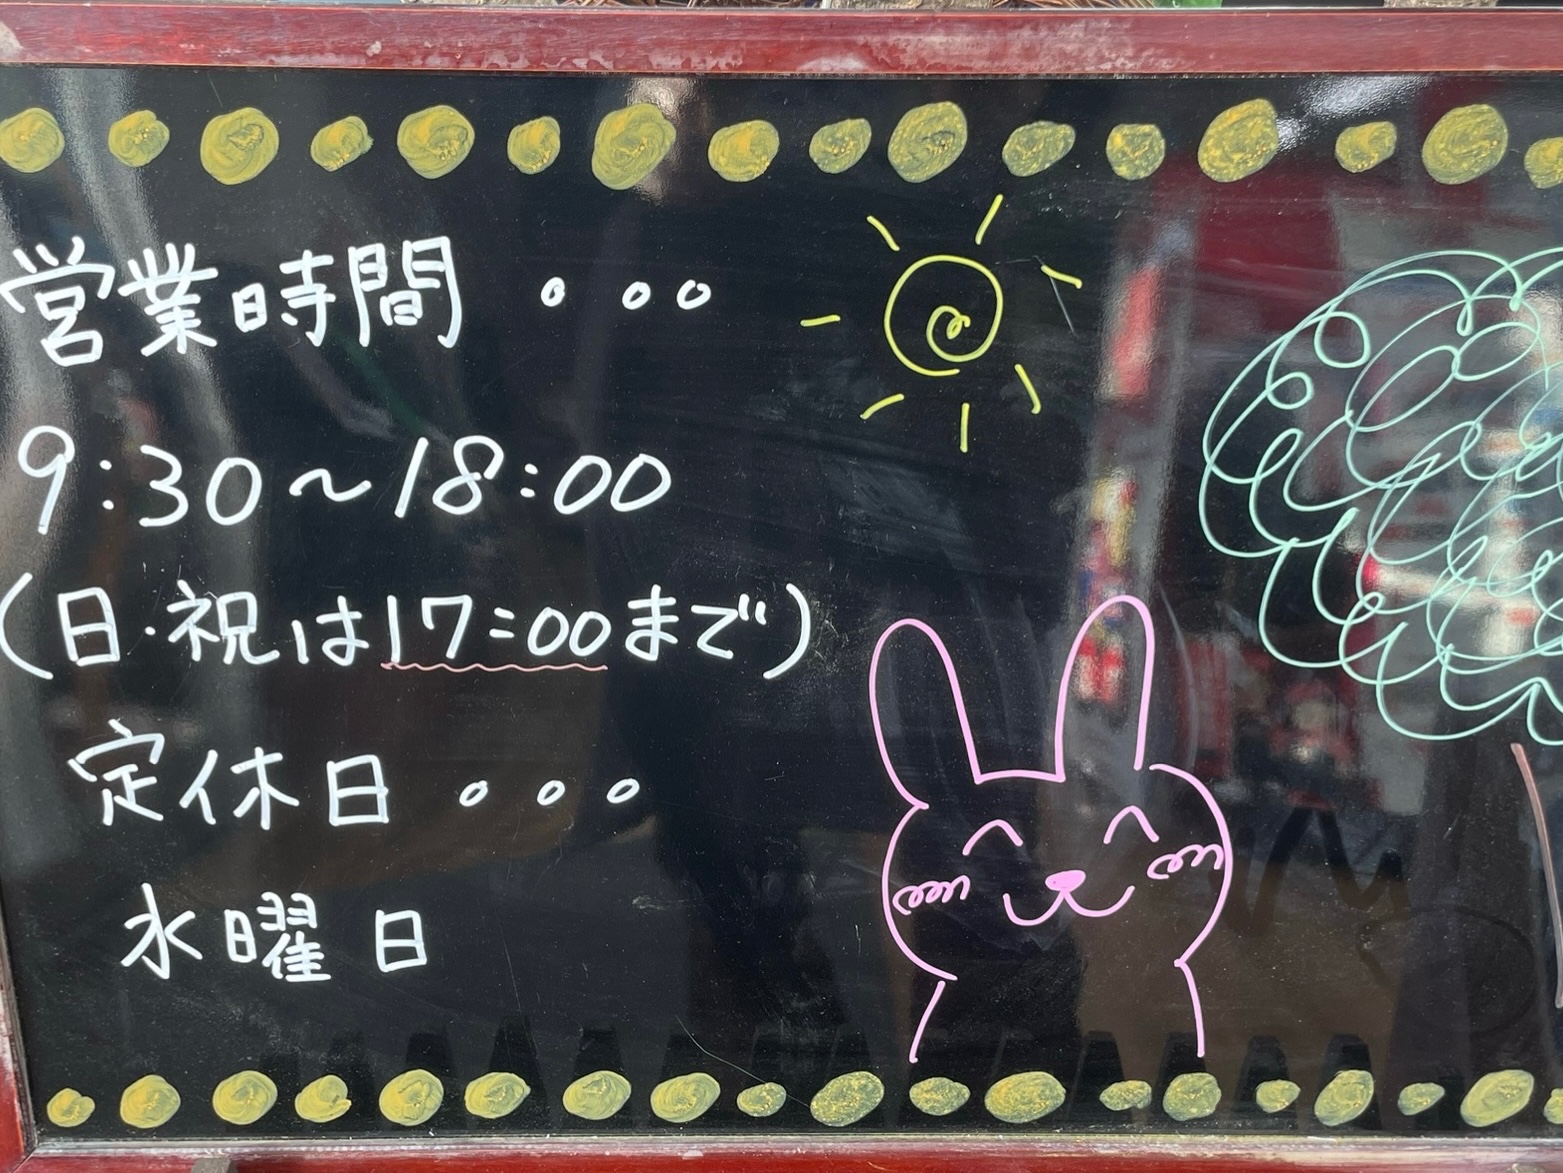 営業時間 。。。
9:30〜18:00
(日・祝は17:00まで)
定休日 。。。
水曜日